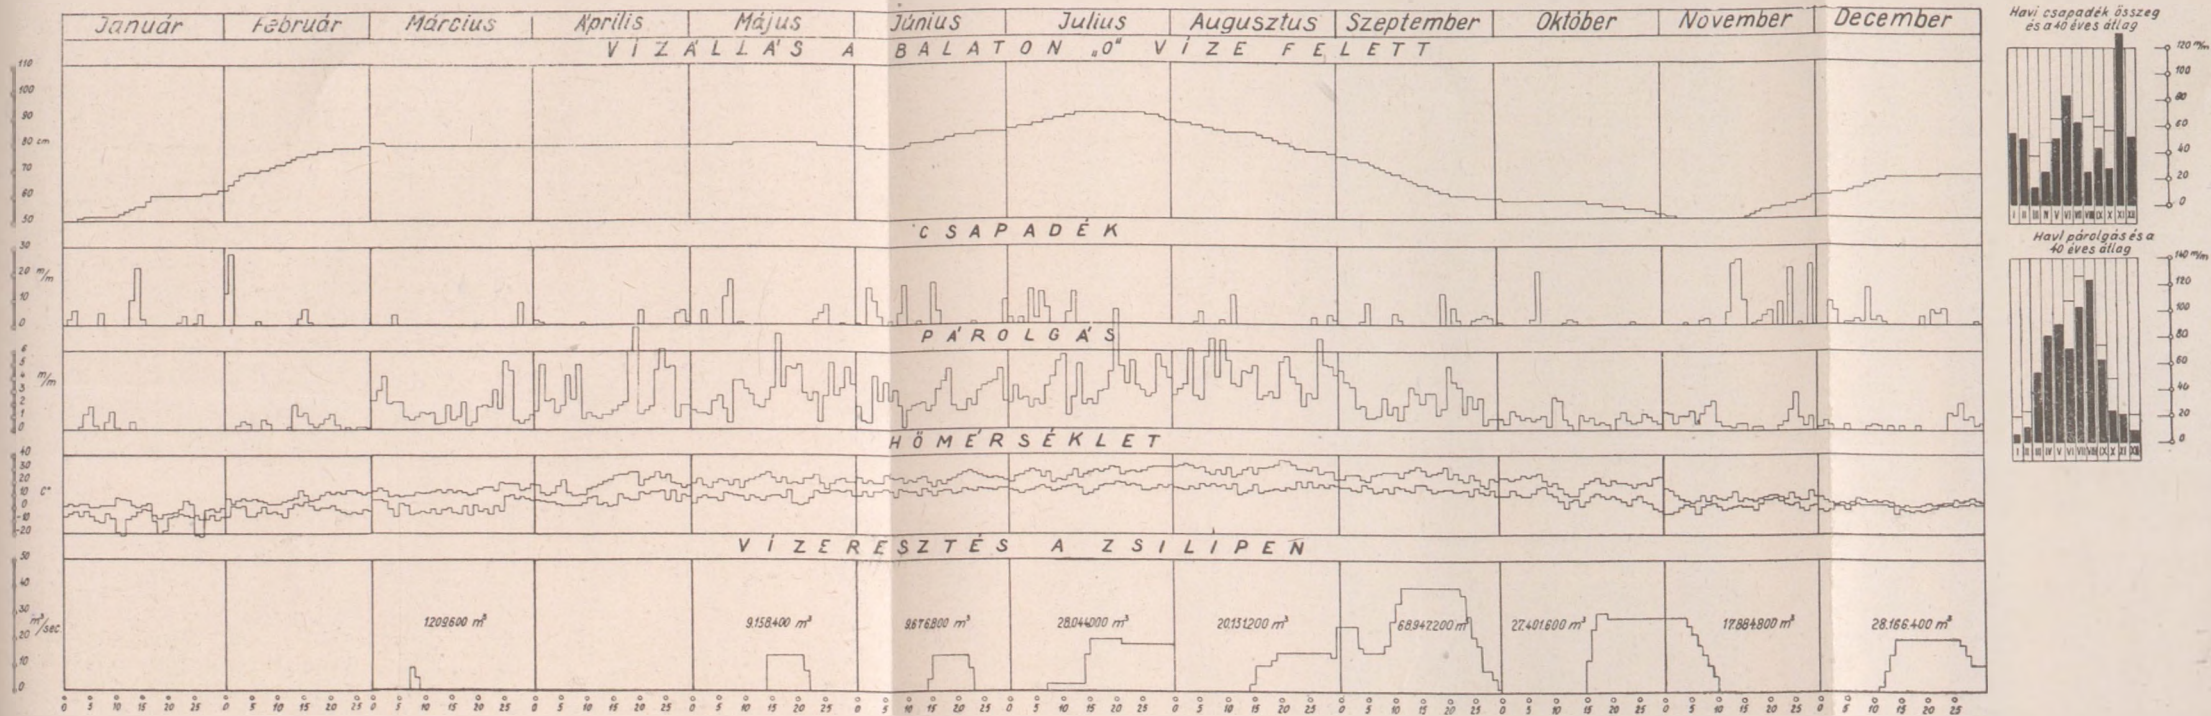 Január Február Március Április Május Június Julius Augusztus Szeptember Október November December
VÍZÁLLÁS A BALATON „0" VÍZE FELETT
110
100
90
80 cm
70
60
50
CSAPADÉK
30
20 m/m
10
0
PÁROLGÁS
6
5
4
3 m/m
2
1
0
HŐMÉRSÉKLET
40
30
20
10 C°
0
-10
-20
VÍZERESZTÉS A ZSILIPEN
50
40
30
m³/sec.
20
10
0
1.209.600 m³ 9.158.400 m³ 9.676.800 m³ 28.044.000 m³ 20.131.200 m³ 68.947.200 m³ 27.401.600 m³ 17.884.800 m³ 28.166.400 m³
0 5 10 15 20 25 0 5 10 15 20 25 0 5 10 15 20 25 0 5 10 15 20 25 0 5 10 15 20 25 0 5 10 15 20 25 0 5 10 15 20 25 0 5 10 15 20 25 0 5 10 15 20 25 0 5 10 15 20 25 0 5 10 15 20 25 0 5 10 15 20 25
Havi csapadék összeg
és a 40 éves átlag
120 m/m
100
80
60
40
20
0
I II III IV V VI VII VIII IX X XI XII
Havi párolgás és a
40 éves átlag
140 m/m
120
100
80
60
40
20
0
I II III IV V VI VII VIII IX X XI XII